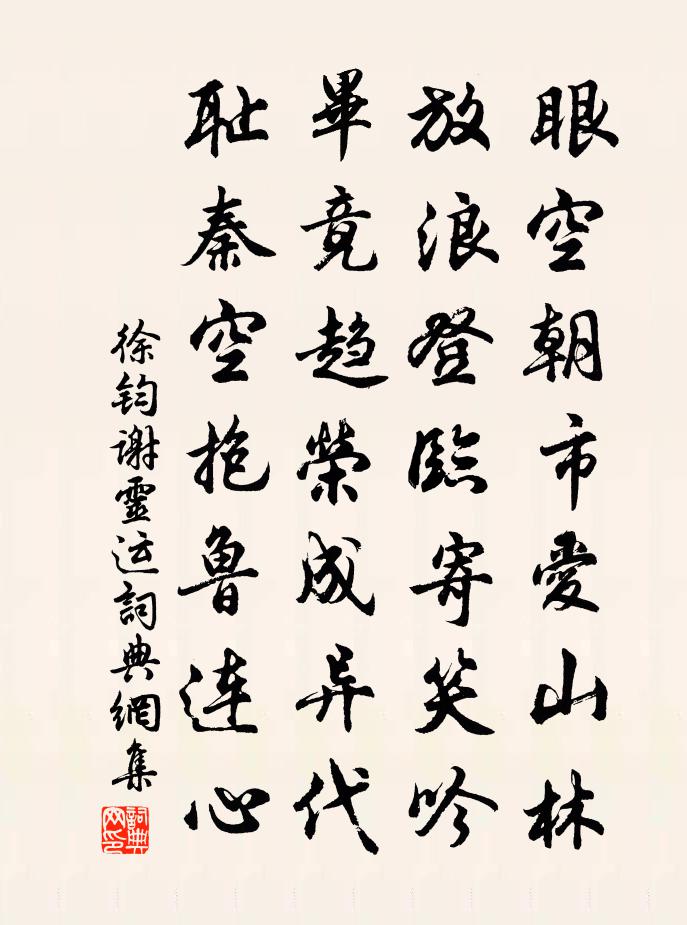 眼空朝市愛山林
放浪登臨寄笑吟
畢竟趨榮成异代
耻秦空抱魯連心
徐鈞謝靈运詞典網集
詞典网印